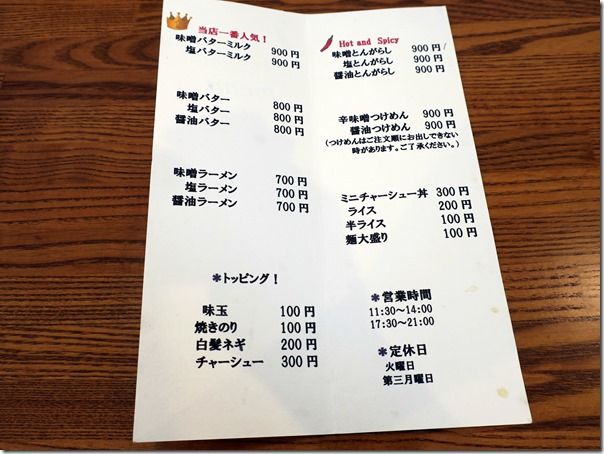 当店一番人気！
味噌バターミルク 900円
塩バターミルク 900円
味噌バター 800円
塩バター 800円
醤油バター 800円
味噌ラーメン 700円
塩ラーメン 700円
醤油ラーメン 700円
＊トッピング！
味玉 100円
焼きのり 100円
白髪ネギ 200円
チャーシュー 300円
Hot and Spicy
味噌とんがらし 900円
塩とんがらし 900円
醤油とんがらし 900円
辛味噌つけめん 900円
醤油つけめん 900円
（つけめんはご注文順にお出しできない
時があります。ご了承ください。）
ミニチャーシュー丼 300円
ライス 200円
半ライス 100円
麺大盛り 100円
＊営業時間
11:30~14:00
17:30~21:00
＊定休日
火曜日
第三月曜日